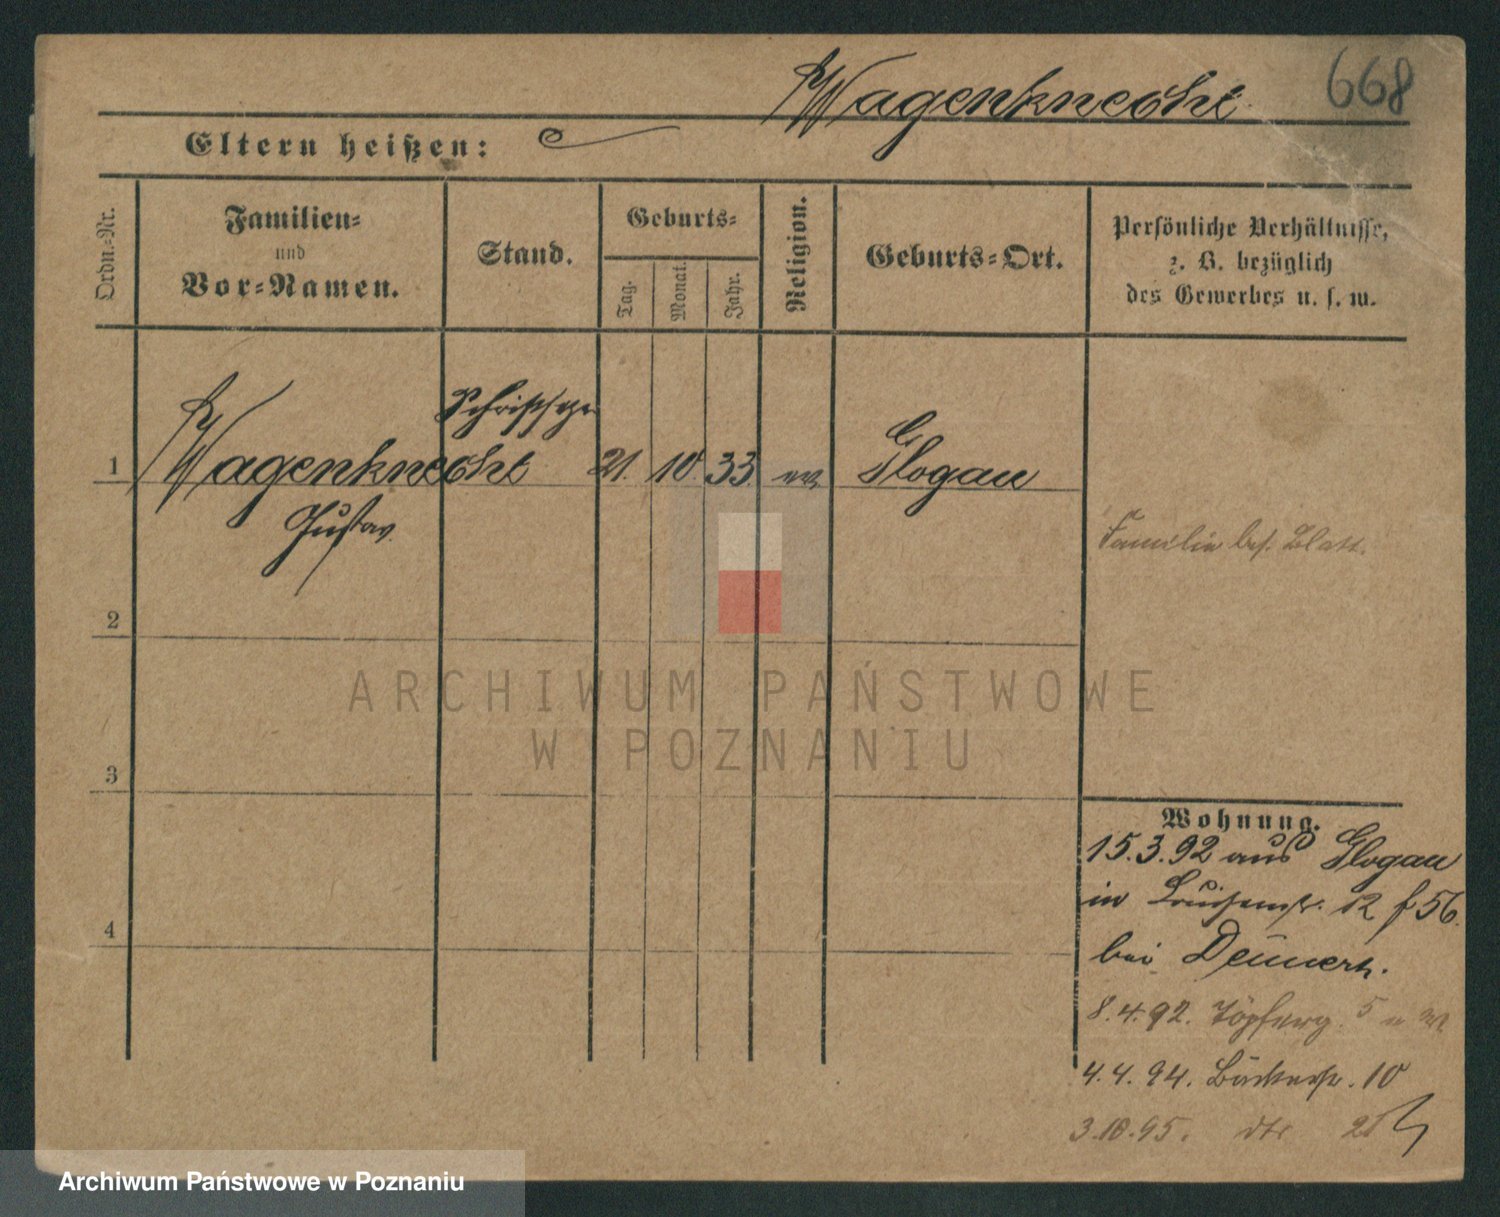 Wagenknecht
668
Eltern heißen:
Ordn.-Nr.
Familien-
und
Vor-Namen.
Stand.
Geburts-
Tag.
Monat.
Jahr.
Religion.
Geburts-Ort.
Persönliche Verhältnisse,
z. B. bezüglich
des Gewerbes u. s. w.
Schriftsetzer
1 Wagenknecht 21. 10. 33. ev. Glogau
Gustav
Familie bes. Blatt.
2
3
4
ARCHIWUM PAŃSTWOWE
W POZNANIU
Wohnung.
15.3.92 aus Glogau
in Louisenstr. 12 f 56.
bei
8.4.92. Töpferg. 5
4.4.94. Bäckerstr. 10
3.10.95. dto
Archiwum Państwowe w Poznaniu